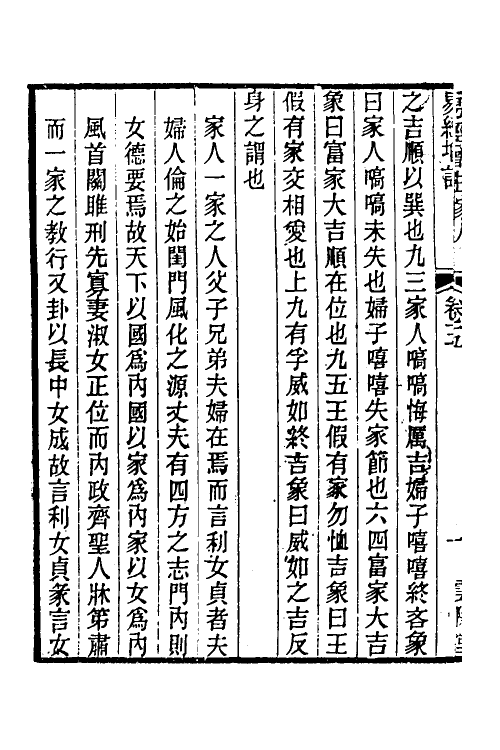 之吉順以巽也九三家人嗃嗃悔厲吉婦子嘻嘻終吝象
曰家人嗃嗃未失也婦子嘻嘻失家節也六四富家大吉
象曰富家大吉順在位也九五王假有家勿恤吉象曰王
假有家交相愛也上九有孚威如終吉象曰威如之吉反
身之謂也
家人一家之人父子兄弟夫婦在焉而言利女貞者夫
婦人倫之始閨門風化之源丈夫有四方之志門內則
女德要焉故天下以國爲內國以家爲內家以女爲內
風首關雎刑先寡妻淑女正位而內政齊聖人牀第肅
而一家之教行又卦以長中女成故言利女貞彖言女